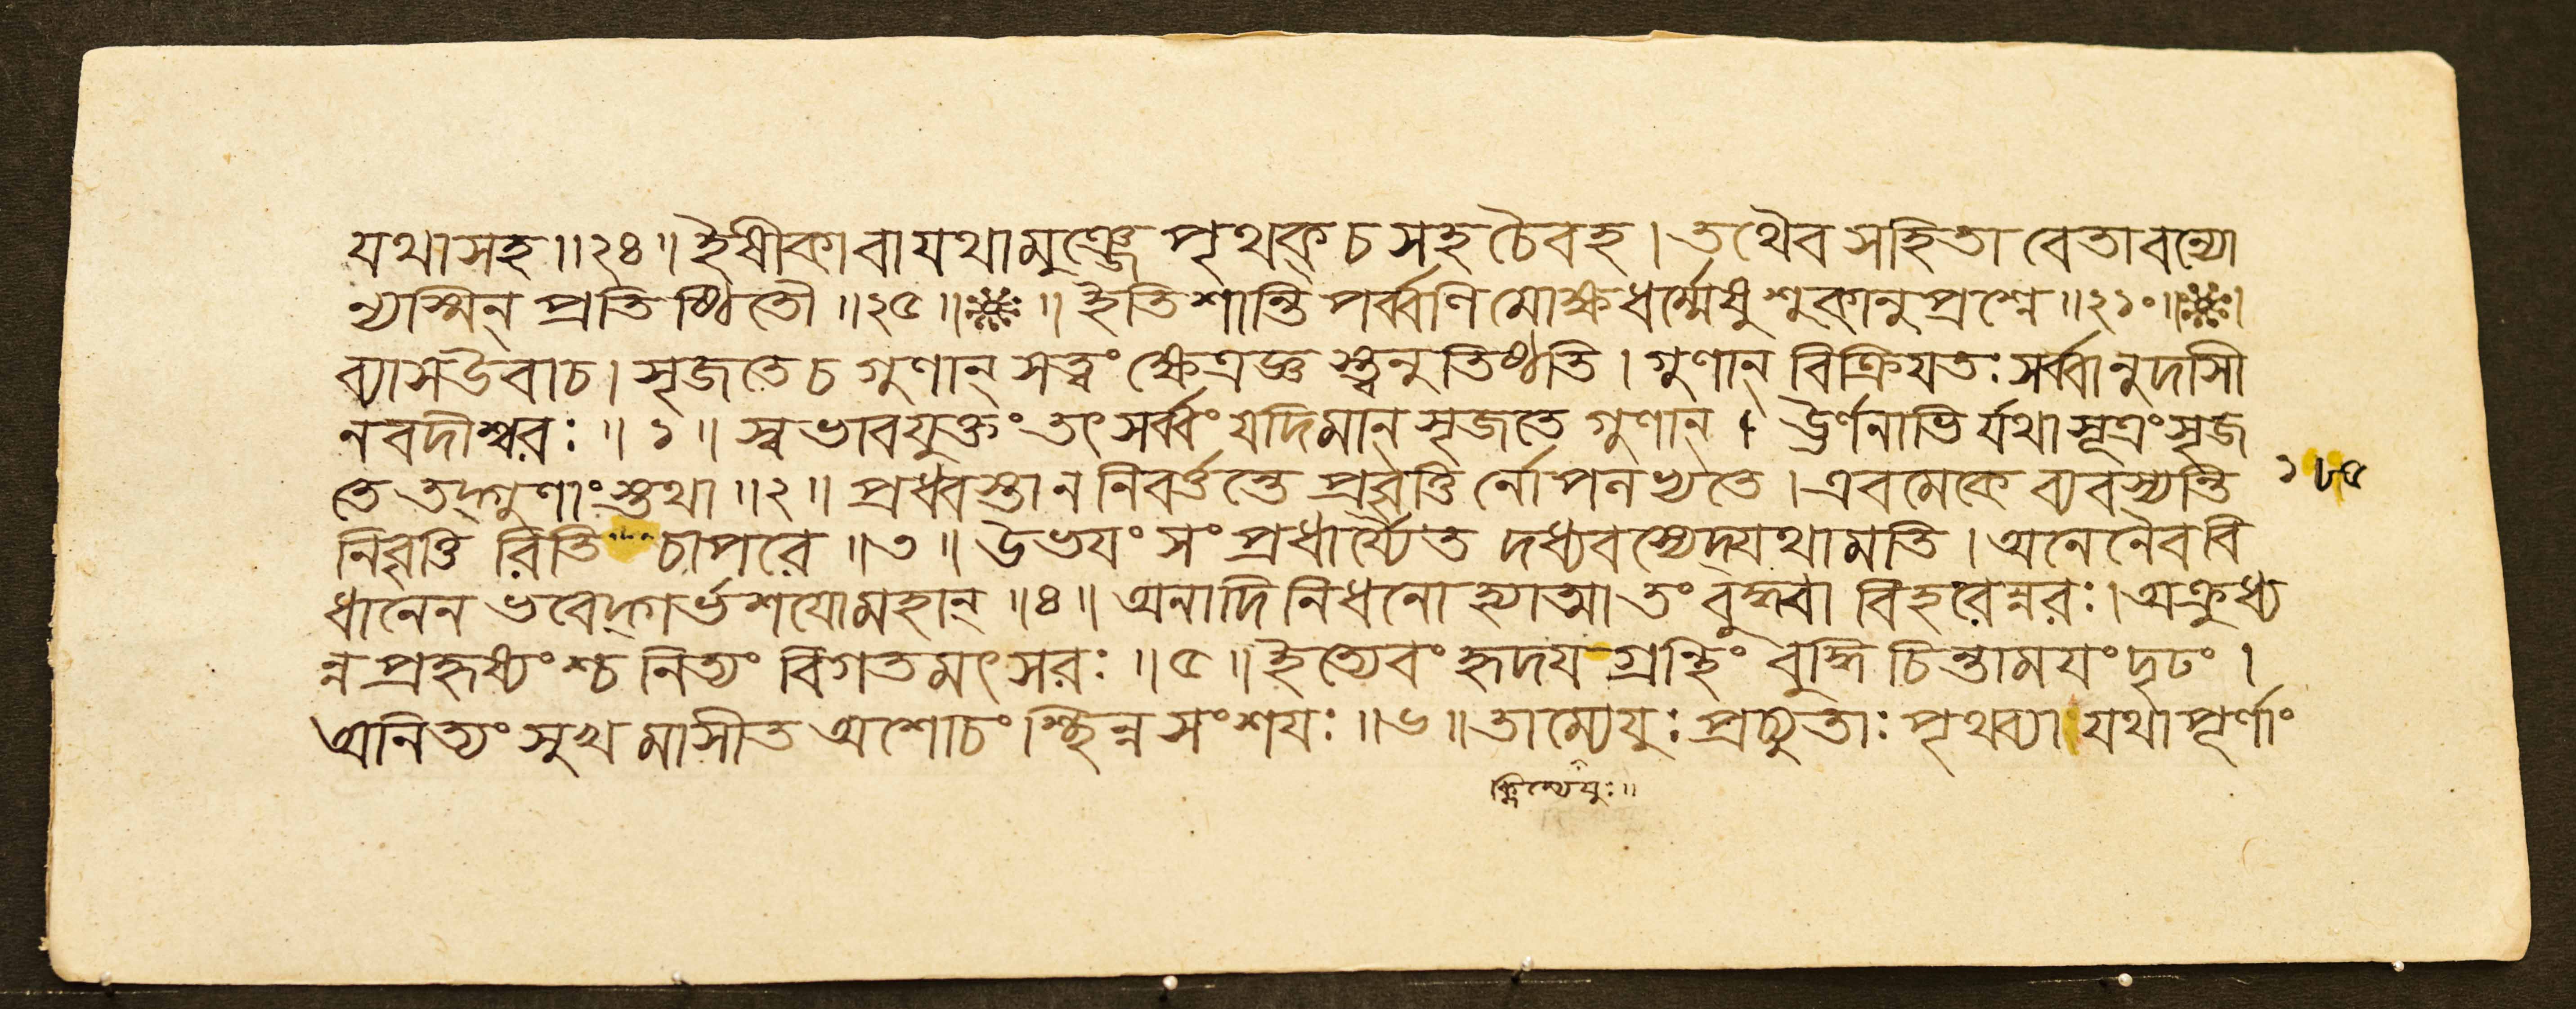 যথাসহ॥২৪॥ইষীকাবাযথামুঞ্জে পৃথক্ চ সহ চৈবহ।তথৈব সহিতা বেতাবন্যো
ন্যস্মিন্ প্রতিষ্ঠিতৌ॥২৫॥ ॥ইতি শান্তি পর্ব্বণি মোক্ষধর্ম্মেষু শুকানুপ্রশ্নে॥২১০॥
ব্যাসউবাচ।সৃজতেচ গুণান্ সত্ত্বং ক্ষেত্রজ্ঞ স্ত্বনুতিষ্ঠতি।গুণান্ বিক্রিয়তঃ সর্ব্বানুদাসী
নবদীশ্বরঃ॥১॥স্বভাবযুক্তং তৎ সর্ব্বং যদিমান্ সৃজতে গুণান্।ঊর্ণনাভি র্যথা সূত্রং সৃজ
তে তদ্গুণাং স্তথা॥২॥প্রধ্বস্তা ন নিবর্ত্তন্তে প্রবৃত্তি র্নোপলভ্যতে।এবমেকে ব্যবস্যন্তি
১৮৫
নিবৃত্তি রিতি চাপরে॥৩॥উভয়ং সংপ্রধার্য্যৈত দধ্যবস্যেদ্ যথামতি।অনেনৈব বি
ধানেন ভবেদ্গর্ভশয়োমহান্॥৪॥অনাদি নিধনো হ্যাত্মা তং বুদ্ধবা বিহরেন্নরঃ।অক্রুধ্য
ন্ন প্রহৃষ্যংশ্চ নিত্যং বিগতমৎসরঃ॥৫॥ইত্যেবং হৃদয় গ্রন্থিং বুদ্ধি চিন্তাময়ং দৃঢং।
অনিত্যং সুখ মাসীত অশোচং শ্ছিন্ন সংশয়ঃ॥৬॥তাম্যেয়ুঃ প্রচ্যুতাঃ পৃথব্যা যথা পূর্ণাং